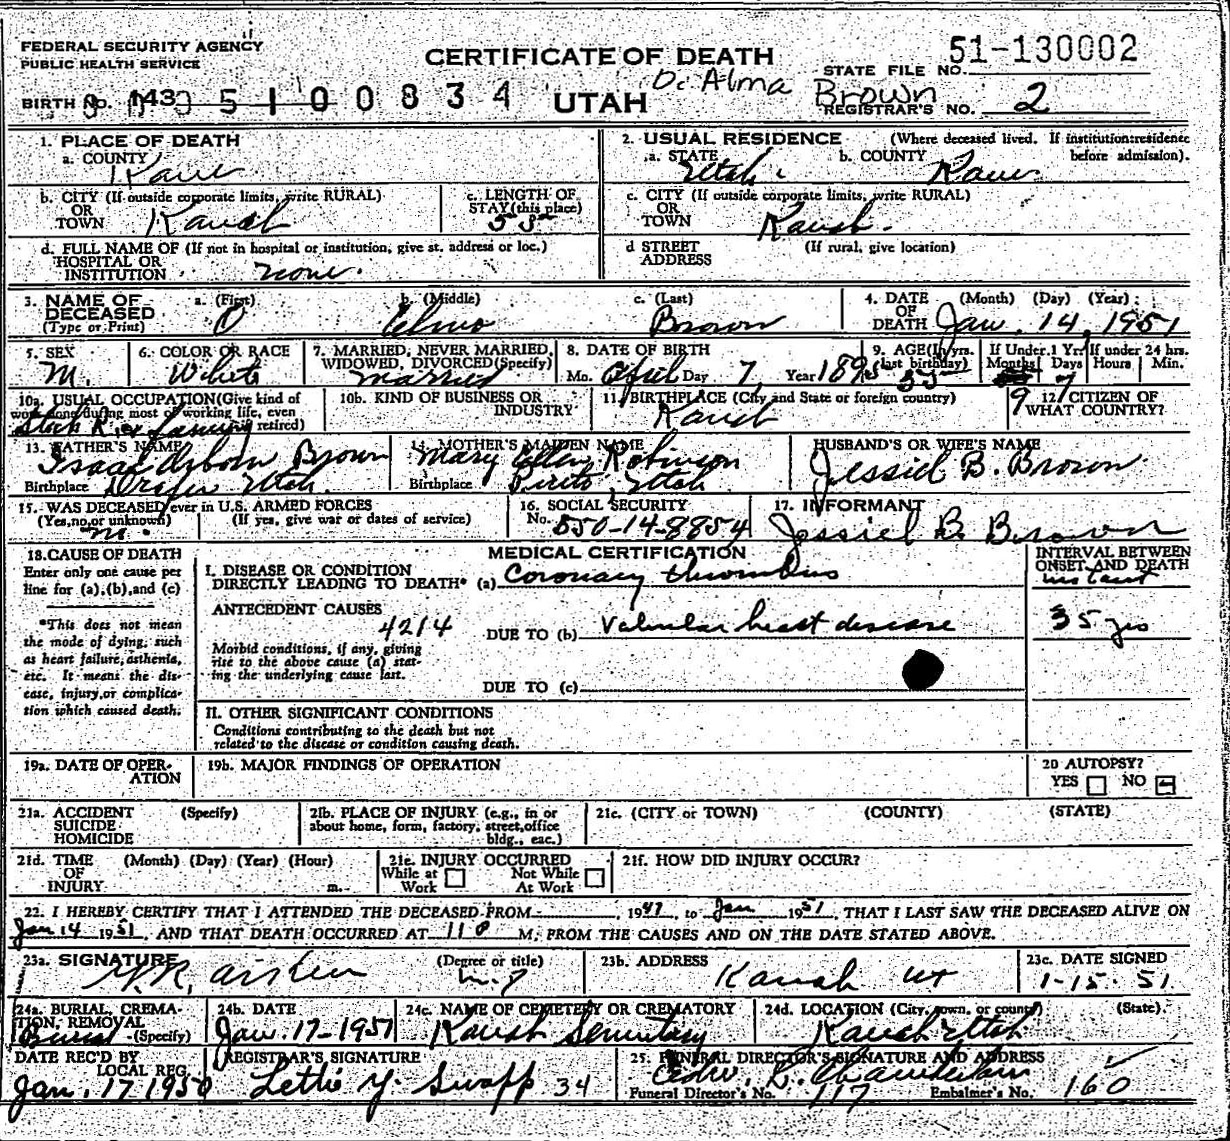 FEDERAL SECURITY AGENCY
PUBLIC HEALTH SERVICE
CERTIFICATE OF DEATH
51-130002
STATE FILE NO.
BIRTH No. 143 0 5 1 0 0 8 3 4
UTAH
Alma Brown
REGISTRAR'S NO. 2
1. PLACE OF DEATH
a. COUNTY Kane
2. USUAL RESIDENCE (Where deceased lived. If institution:residence before admission).
a. STATE Utah b. COUNTY Kane
b. CITY (If outside corporate limits, write RURAL)
OR TOWN Kanab
c. LENGTH OF STAY (this place) 55
c. CITY (If outside corporate limits, write RURAL)
OR TOWN Kanab.
d. FULL NAME OF (If not in hospital or institution, give st. address or loc.)
HOSPITAL OR INSTITUTION none.
d STREET ADDRESS (If rural, give location)
3. NAME OF DECEASED (Type or Print)
a. (First) O b. (Middle) Elmo c. (Last) Brown
4. DATE OF DEATH (Month) (Day) (Year) Jan. 14, 1951
5. SEX M.
6. COLOR OR RACE White
7. MARRIED, NEVER MARRIED, WIDOWED, DIVORCED(Specify) Married
8. DATE OF BIRTH Mo. April Day 7 Year 1895
9. AGE(In yrs. last birthday) 55
If Under 1 Yr. Months 9 Days 7
If under 24 hrs. Hours Min.
10a. USUAL OCCUPATION(Give kind of work done during most of working life, even retired) Stock R. farming
10b. KIND OF BUSINESS OR INDUSTRY
11. BIRTHPLACE (City and State or foreign country) Kanab
12. CITIZEN OF WHAT COUNTRY?
13. FATHER'S NAME Isaac Osborn Brown
Birthplace Draper Utah.
14. MOTHER'S MAIDEN NAME Mary Ellen Robinson
Birthplace Pinto, Utah
HUSBAND'S OR WIFE'S NAME
Jessiel B. Brown
15. WAS DECEASED ever in U.S. ARMED FORCES
(Yes,no,or unknown) (If yes, give war or dates of service)
16. SOCIAL SECURITY No. 550-14-8854
17. INFORMANT
Jessiel B. Brown
18. CAUSE OF DEATH
Enter only one cause per line for (a),(b),and (c)
*This does not mean the mode of dying, such as heart failure, asthenia, etc. It means the disease, injury, or complication which caused death.
MEDICAL CERTIFICATION
INTERVAL BETWEEN ONSET AND DEATH
I. DISEASE OR CONDITION DIRECTLY LEADING TO DEATH* (a) Coronary thrombus instant
ANTECEDENT CAUSES
4214
DUE TO (b) Valvular heart disease 35 yrs
Morbid conditions, if any, giving rise to the above cause (a) stating the underlying cause last.
DUE TO (c)
II. OTHER SIGNIFICANT CONDITIONS
Conditions contributing to the death but not related to the disease or condition causing death.
19a. DATE OF OPERATION
19b. MAJOR FINDINGS OF OPERATION
20 AUTOPSY?
YES NO
21a. ACCIDENT SUICIDE HOMICIDE (Specify)
21b. PLACE OF INJURY (e.g., in or about home, form, factory, street,office bldg., eac.)
21c. (CITY or TOWN) (COUNTY) (STATE)
21d. TIME OF INJURY (Month) (Day) (Year) (Hour) m.
21e. INJURY OCCURRED
While at Work Not While At Work
21f. HOW DID INJURY OCCUR?
22. I HEREBY CERTIFY THAT I ATTENDED THE DECEASED FROM 1947, to Jan 1951, THAT I LAST SAW THE DECEASED ALIVE ON
Jan 14 1951, AND THAT DEATH OCCURRED AT 11 M, FROM THE CAUSES AND ON THE DATE STATED ABOVE.
23a. SIGNATURE Aiken (Degree or title)
23b. ADDRESS Kanab Ut
23c. DATE SIGNED 1-15-51
24a. BURIAL, CREMATION, REMOVAL (Specify) Burial
24b. DATE Jan. 17-1951
24c. NAME OF CEMETERY OR CREMATORY
Kanab Semetary
24d. LOCATION (City, town, or county) (State).
Kanab Utah
DATE REC'D BY LOCAL REG. Jan. 17 1950
REGISTRAR'S SIGNATURE
Lettie Y. Swapp 34
25. FUNERAL DIRECTOR'S SIGNATURE AND ADDRESS
L. Chamberlain
Funeral Director's No. 117 Embalmer's No. 160